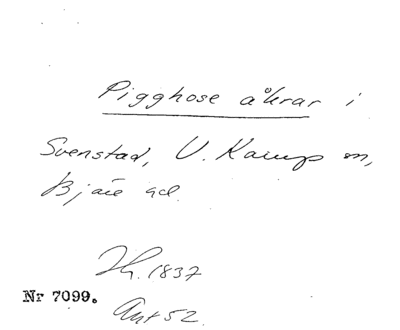 Pigghose åkrar i
Svenstad, V. Karup sn,
Bjäre hd.
Jh. 1837
Nr 7099.
Ant 52.